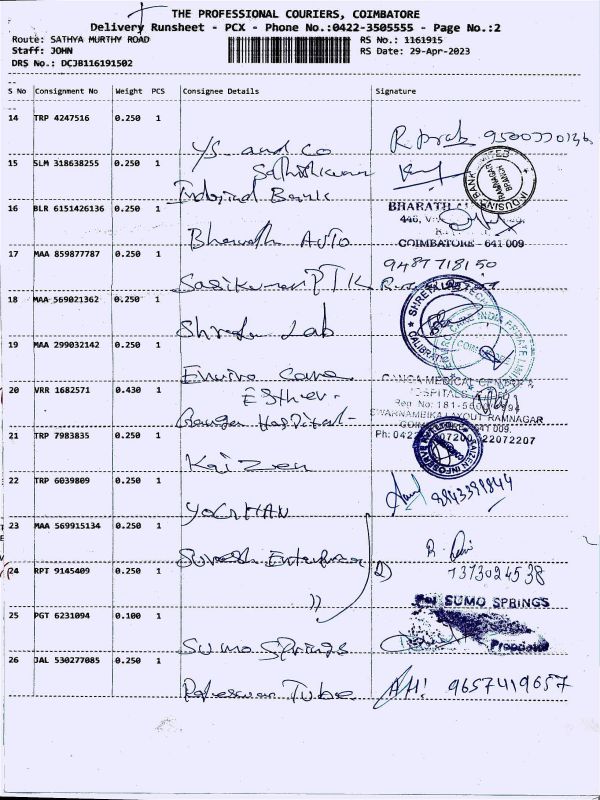 THE PROFESSIONAL COURIERS, COIMBATORE
Delivery Runsheet - PCX - Phone No.:0422-3505555 - Page No.:2
Route: SATHYA MURTHY ROAD
RS No.: 1161915
Staff: JOHN
RS Date: 29-Apr-2023
DRS No.: DCJB116191502
S No Consignment No Weight PCS Consignee Details Signature
14 TRP 4247516 0.250 1
and co 
15 SLM 318638255 0.250 1
INDUSIND BANK
RAMNAGAR BRANCH
Indusind Bank
16 BLR 6151426136 0.250 1
BHARATH
Bharath Auto
COIMBATORE - 641 009
17 MAA 859877787 0.250 1
9487718150
Sasikumar PTK
18 MAA 569021362 0.250 1
Shree Lab
19 MAA 299032142 0.250 1
Enviro Care
GANGA MEDICAL CENTRE &
20 VRR 1682571 0.430 1
Esther
Ganga Hospital
SWARNAMBIKA LAYOUT RAMNAGAR
21 TRP 7983835 0.250 1
Kaizen
KAIZEN INFOSERVE
22 TRP 6039809 0.250 1
23 MAA 569915134 0.250 1
Suresh Enterprises
24 RPT 9145409 0.250 1
7373024538
"
25 PGT 6231094 0.100 1
For SUMO SPRINGS
Sumo Springs
Proprietor
26 JAL 530277085 0.250 1
Tube
9657419657